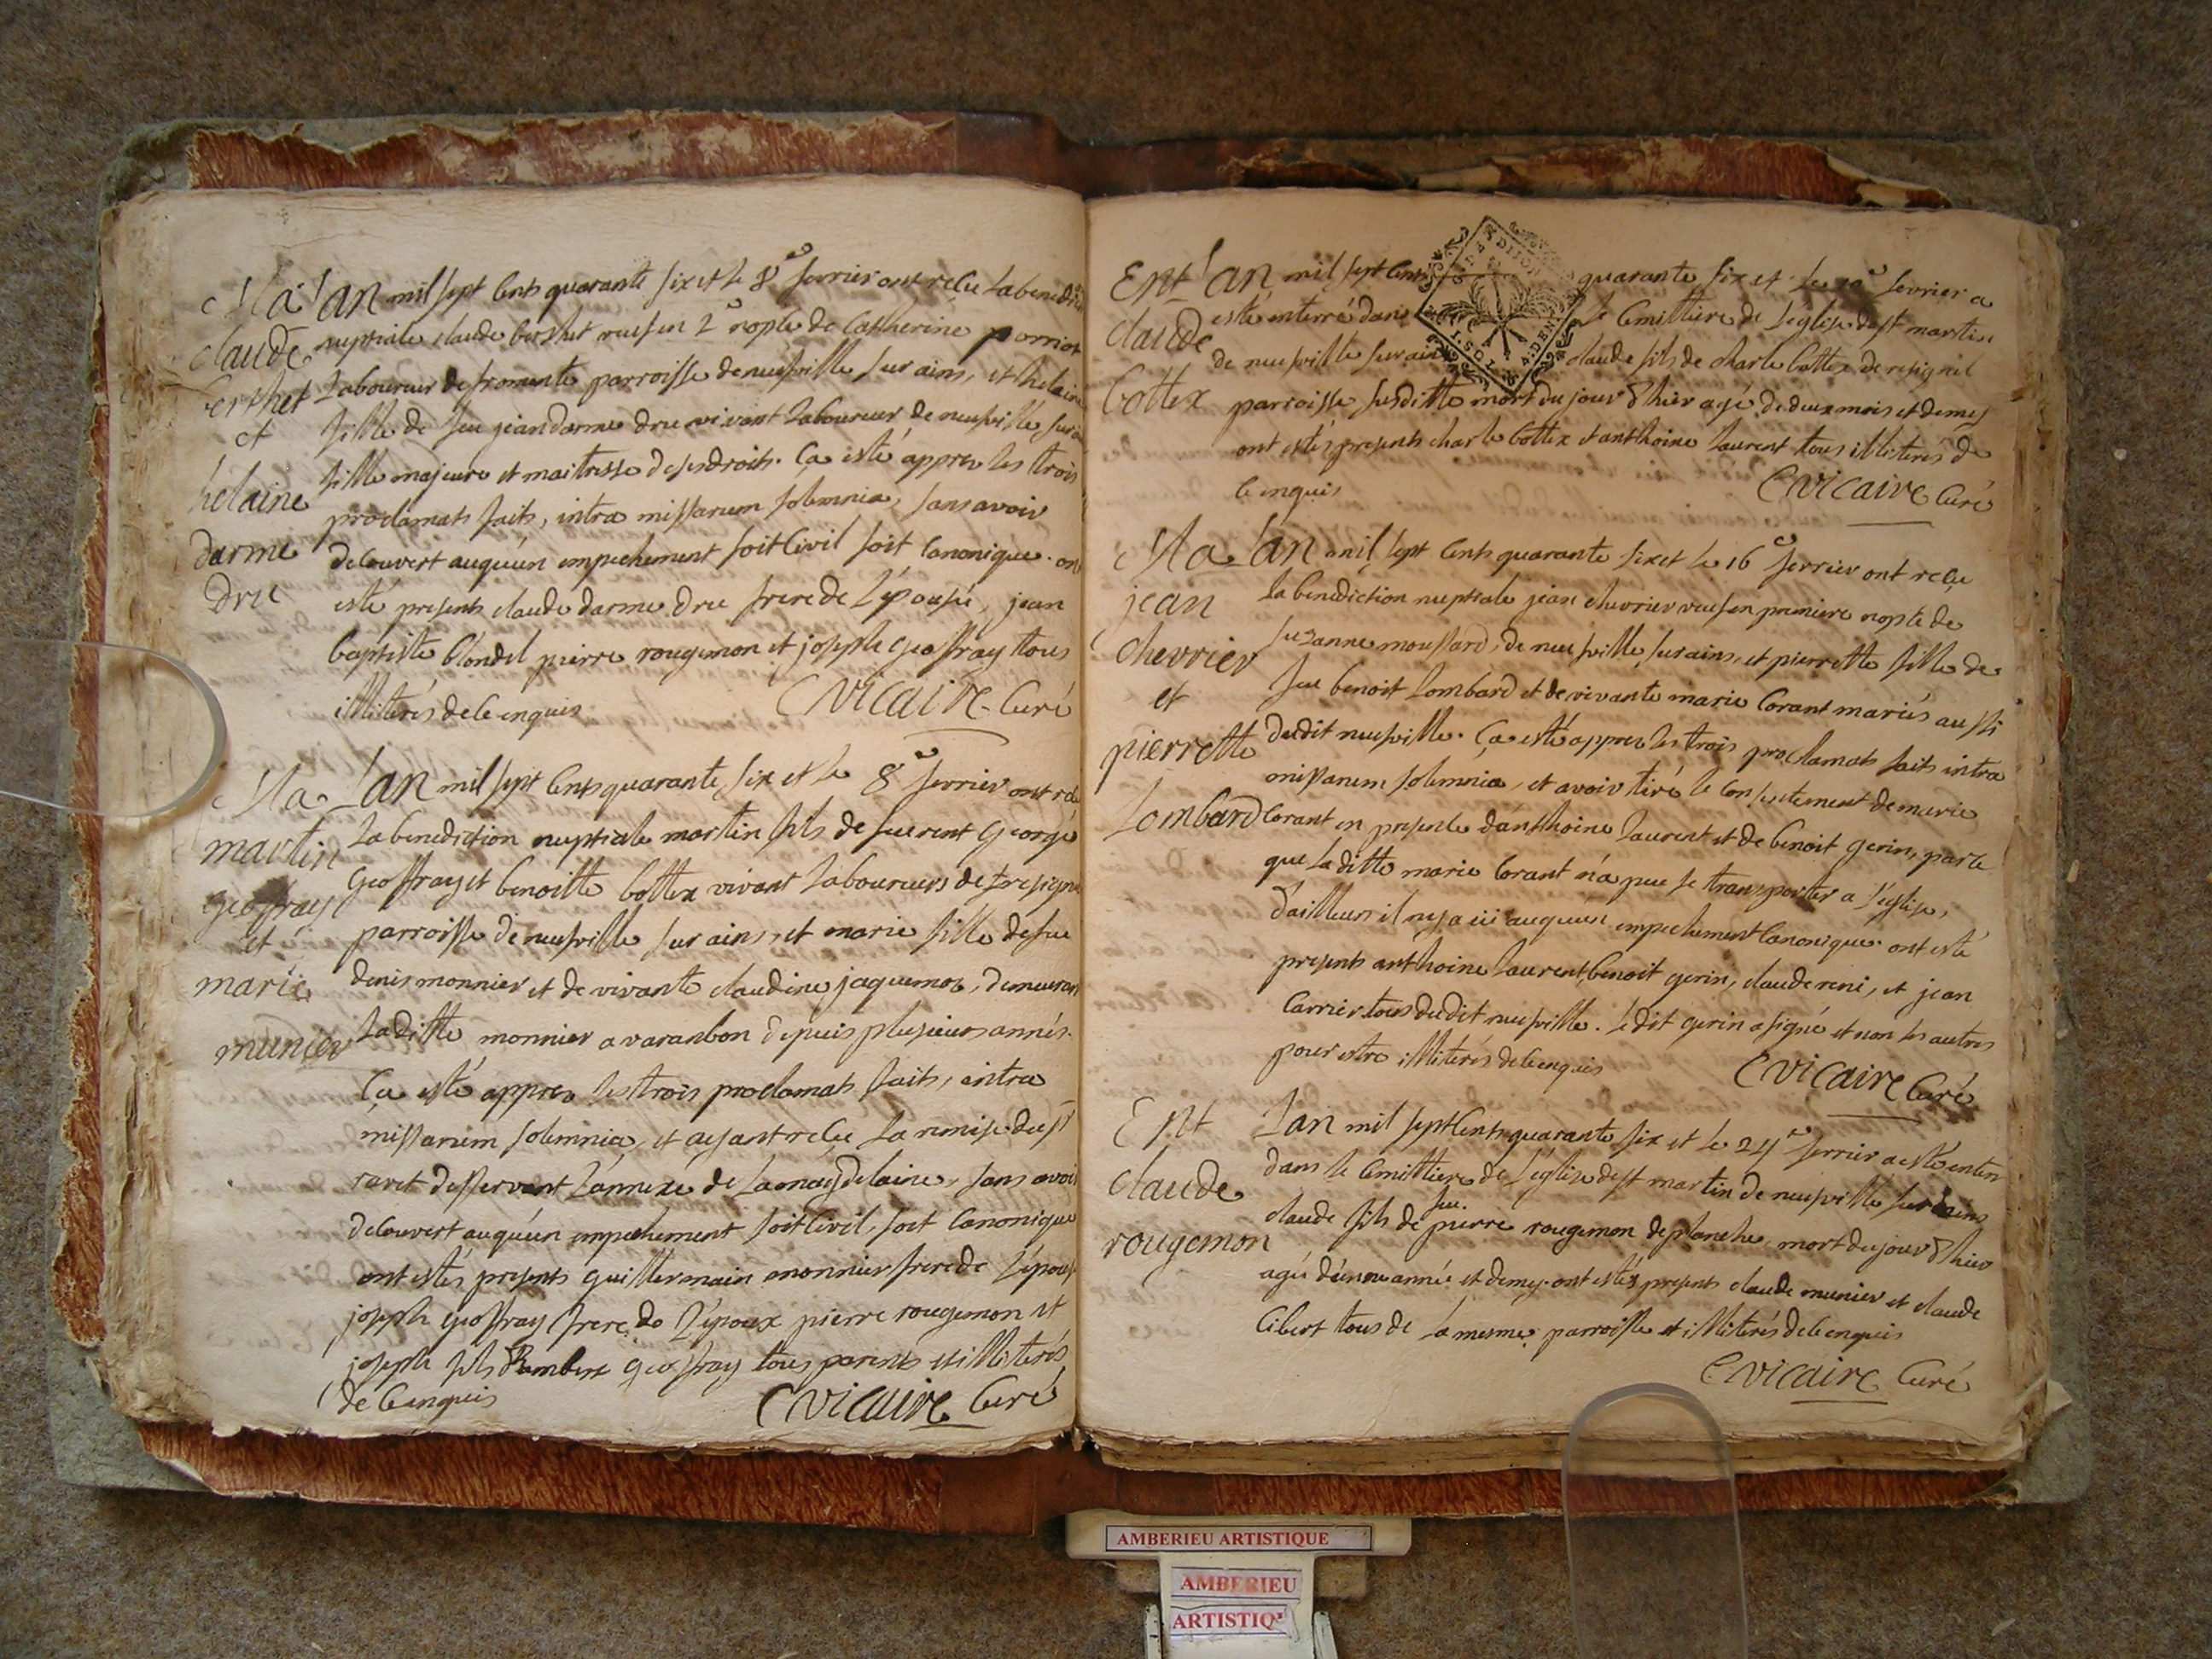 Ma
claude
berthet
et
helaine
darme
dru
L'an mil sept cents quarante six et le 8e fevrier ont reçu la benedi
nuptiale claude berthet veuf en 2e nopte de Catherine porriot
Laboureur de fromente parroisse de neufville sur ains, et helaine
fille de feu jean darme dru vivant Laboureur de neufville sur
fille majeure et maitresse de ses droits. Ça esté appres les trois
proclamats faits, intra missarum solemnia, sans avoir
decouvert auqu'un empechement soit Civil soit Canonique. on
esté presents claude darme dru frere de L'épouse, jean
baptiste blondel pierre rougemon et joseph geoffray tous
illiterés de ce enquis
C vicaire Curé
Ma
martin
geoffray
et
marie
munier
L'an mil sept Cents quarante six et le 8e fevrier ont re
La benediction nuptiale martin fils de fuerent George
geoffray et benoitte bottex vivant Laboureurs de
parroisse de neufville sur ains, et marie fille de feu
denis monnier et de vivante claudine jaquemot, demeuran
Laditte monnier a varanbon depuis plusieurs annés.
Ça esté appres les trois proclamats faits, intra
missarum solemnia, et ayant reçu La remise du sr
ravet desservant L'annexe de La magdelaine, sans avoir
decouvert auqu'un empechement soit Civil, soit Canonique
ont estés presents guillermain monnier frere de L'épouse
joseph geoffray frere de L'époux pierre rougemon et
joseph fils Rambert geoffray tous parents et illiterés
de Ce enquis
C vicaire Curé
Ent
claude
bottex
L'an mil sept Cents quarante six et le 10e fevrier a
esté enterré dans le Cimittiere de L'église de st martin
de neufville sur ain claude fils de charle bottex de resignel
parroisse susditte mort du jour d'hier agé de deux mois et demy
ont estés presents charle bottex et anthoine Laurent tous illiterés de
Ce enquis
C vicaire Curé
DIJON
1.SOL 4.DEN
Ma
jean
chevrier
et
pierrette
Lombard
L'an mil sept Cents quarante six et le 16e fevrier ont reçu
La benediction nuptiale jean chevrier veuf en premiere nopte de
suzanne moussard, de neufville sur ains, et pierrette fille de
feu benoit Lombard et de vivante marie Corant mariés aussi
dudit neufville. Ça esté appres les trois proclamats faits intra
missarum solemnia, et avoir tiré le Consentement de marie
Corant en presente d'anthoine Laurent et de benoit gerin, parce
que La ditte marie Corant n'a peu se transporter a l'eglise,
d'ailleurs il ny a ü auqu'un empechement Canonique. ont esté
presents anthoine Laurent, benoit gerin, claude reni, et jean
Carrier tous dudit neufville. Ledit gerin a signé et non les autres
pour estre illiterés de Ce enquis
C vicaire Curé
Ent
claude
rougemon
L'an mil sept Cents quarante six et le 24e fevrier a esté enterr
dans le Cimittiere de L'église de st martin de neufville sur ains
claude fils de feu pierre rougemon de planche, mort du jour d'hier
agé d'une année et demy. ont estés presents claude munier et claude
Cibert tous de La mesme parroisse et illiterés de Ce enquis
C vicaire Curé
AMBERIEU ARTISTIQUE
AMBERIEU
ARTISTIQ